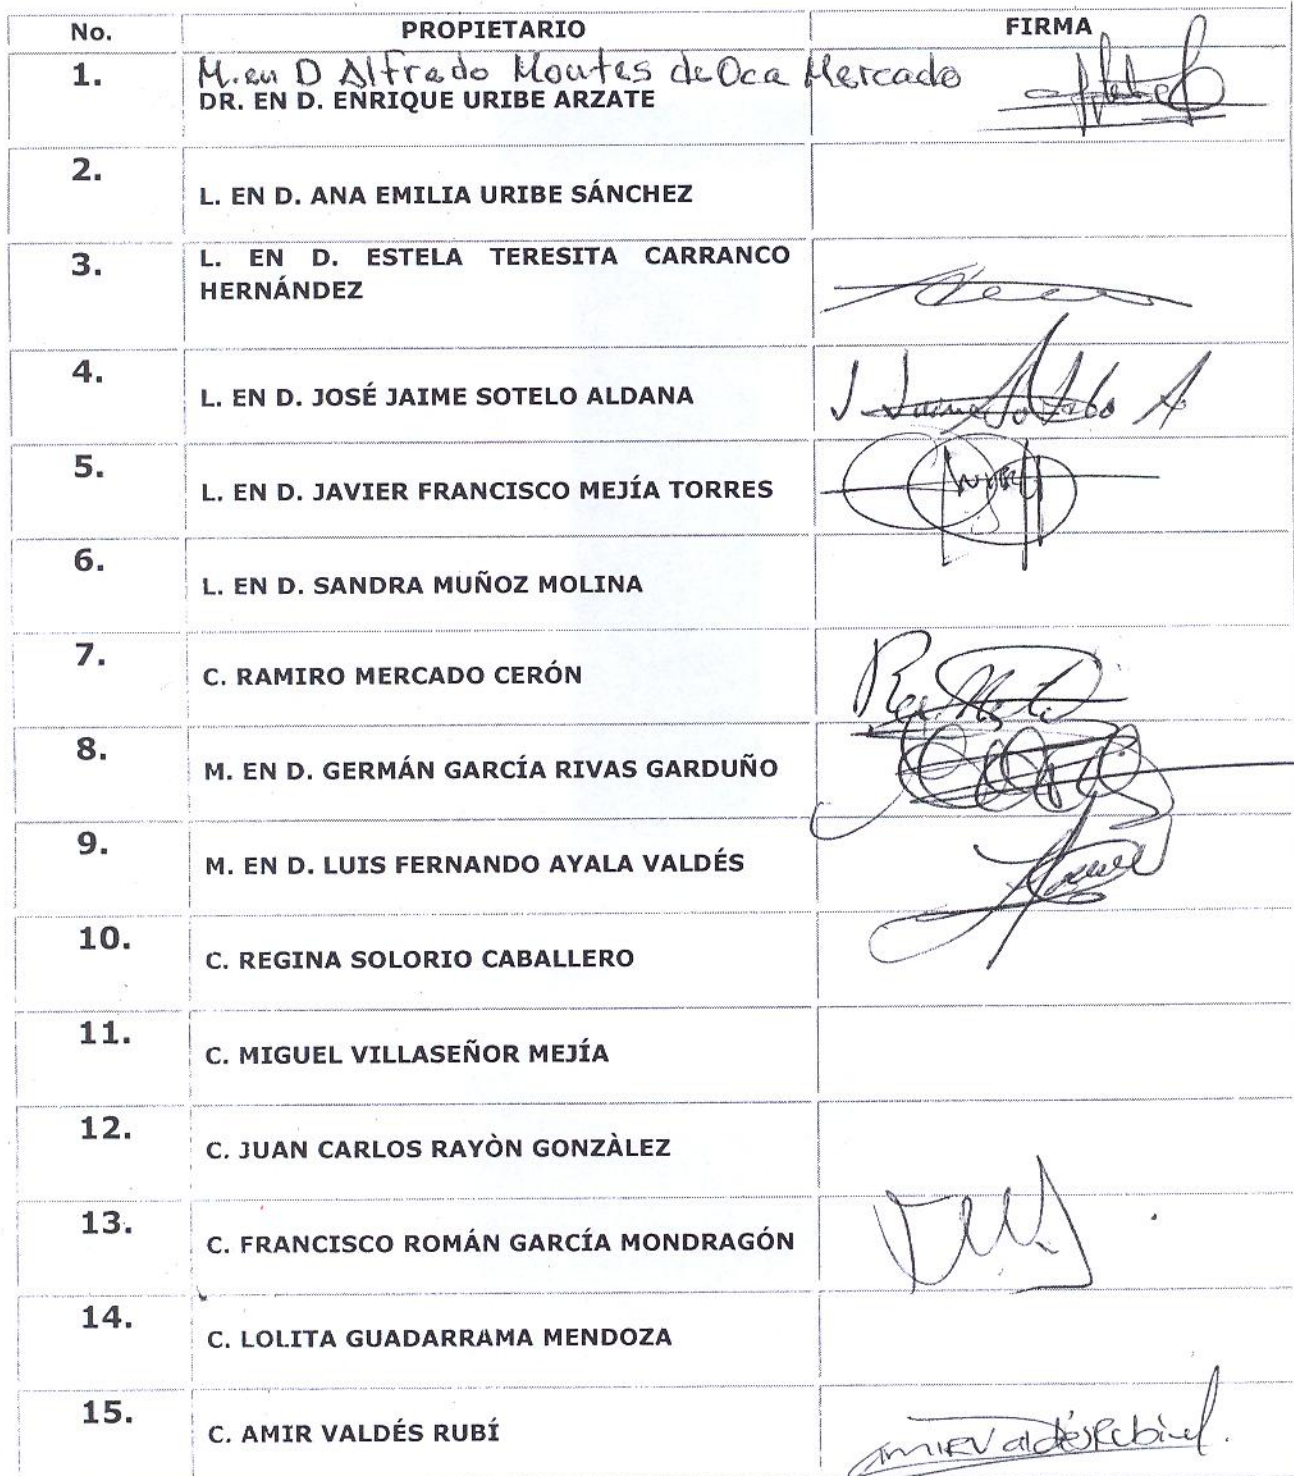 No. PROPIETARIO FIRMA
1. M. en D Alfredo Montes de Oca Mercado
DR. EN D. ENRIQUE URIBE ARZATE
2.
L. EN D. ANA EMILIA URIBE SÁNCHEZ
3. L. EN D. ESTELA TERESITA CARRANCO
HERNÁNDEZ
4.
L. EN D. JOSÉ JAIME SOTELO ALDANA J Jaime Sotelo A
5.
L. EN D. JAVIER FRANCISCO MEJÍA TORRES
6.
L. EN D. SANDRA MUÑOZ MOLINA
7.
C. RAMIRO MERCADO CERÓN
8.
M. EN D. GERMÁN GARCÍA RIVAS GARDUÑO
9.
M. EN D. LUIS FERNANDO AYALA VALDÉS
10.
C. REGINA SOLORIO CABALLERO
11.
C. MIGUEL VILLASEÑOR MEJÍA
12.
C. JUAN CARLOS RAYÒN GONZÀLEZ
13.
C. FRANCISCO ROMÁN GARCÍA MONDRAGÓN
14.
C. LOLITA GUADARRAMA MENDOZA
15.
C. AMIR VALDÉS RUBÍ